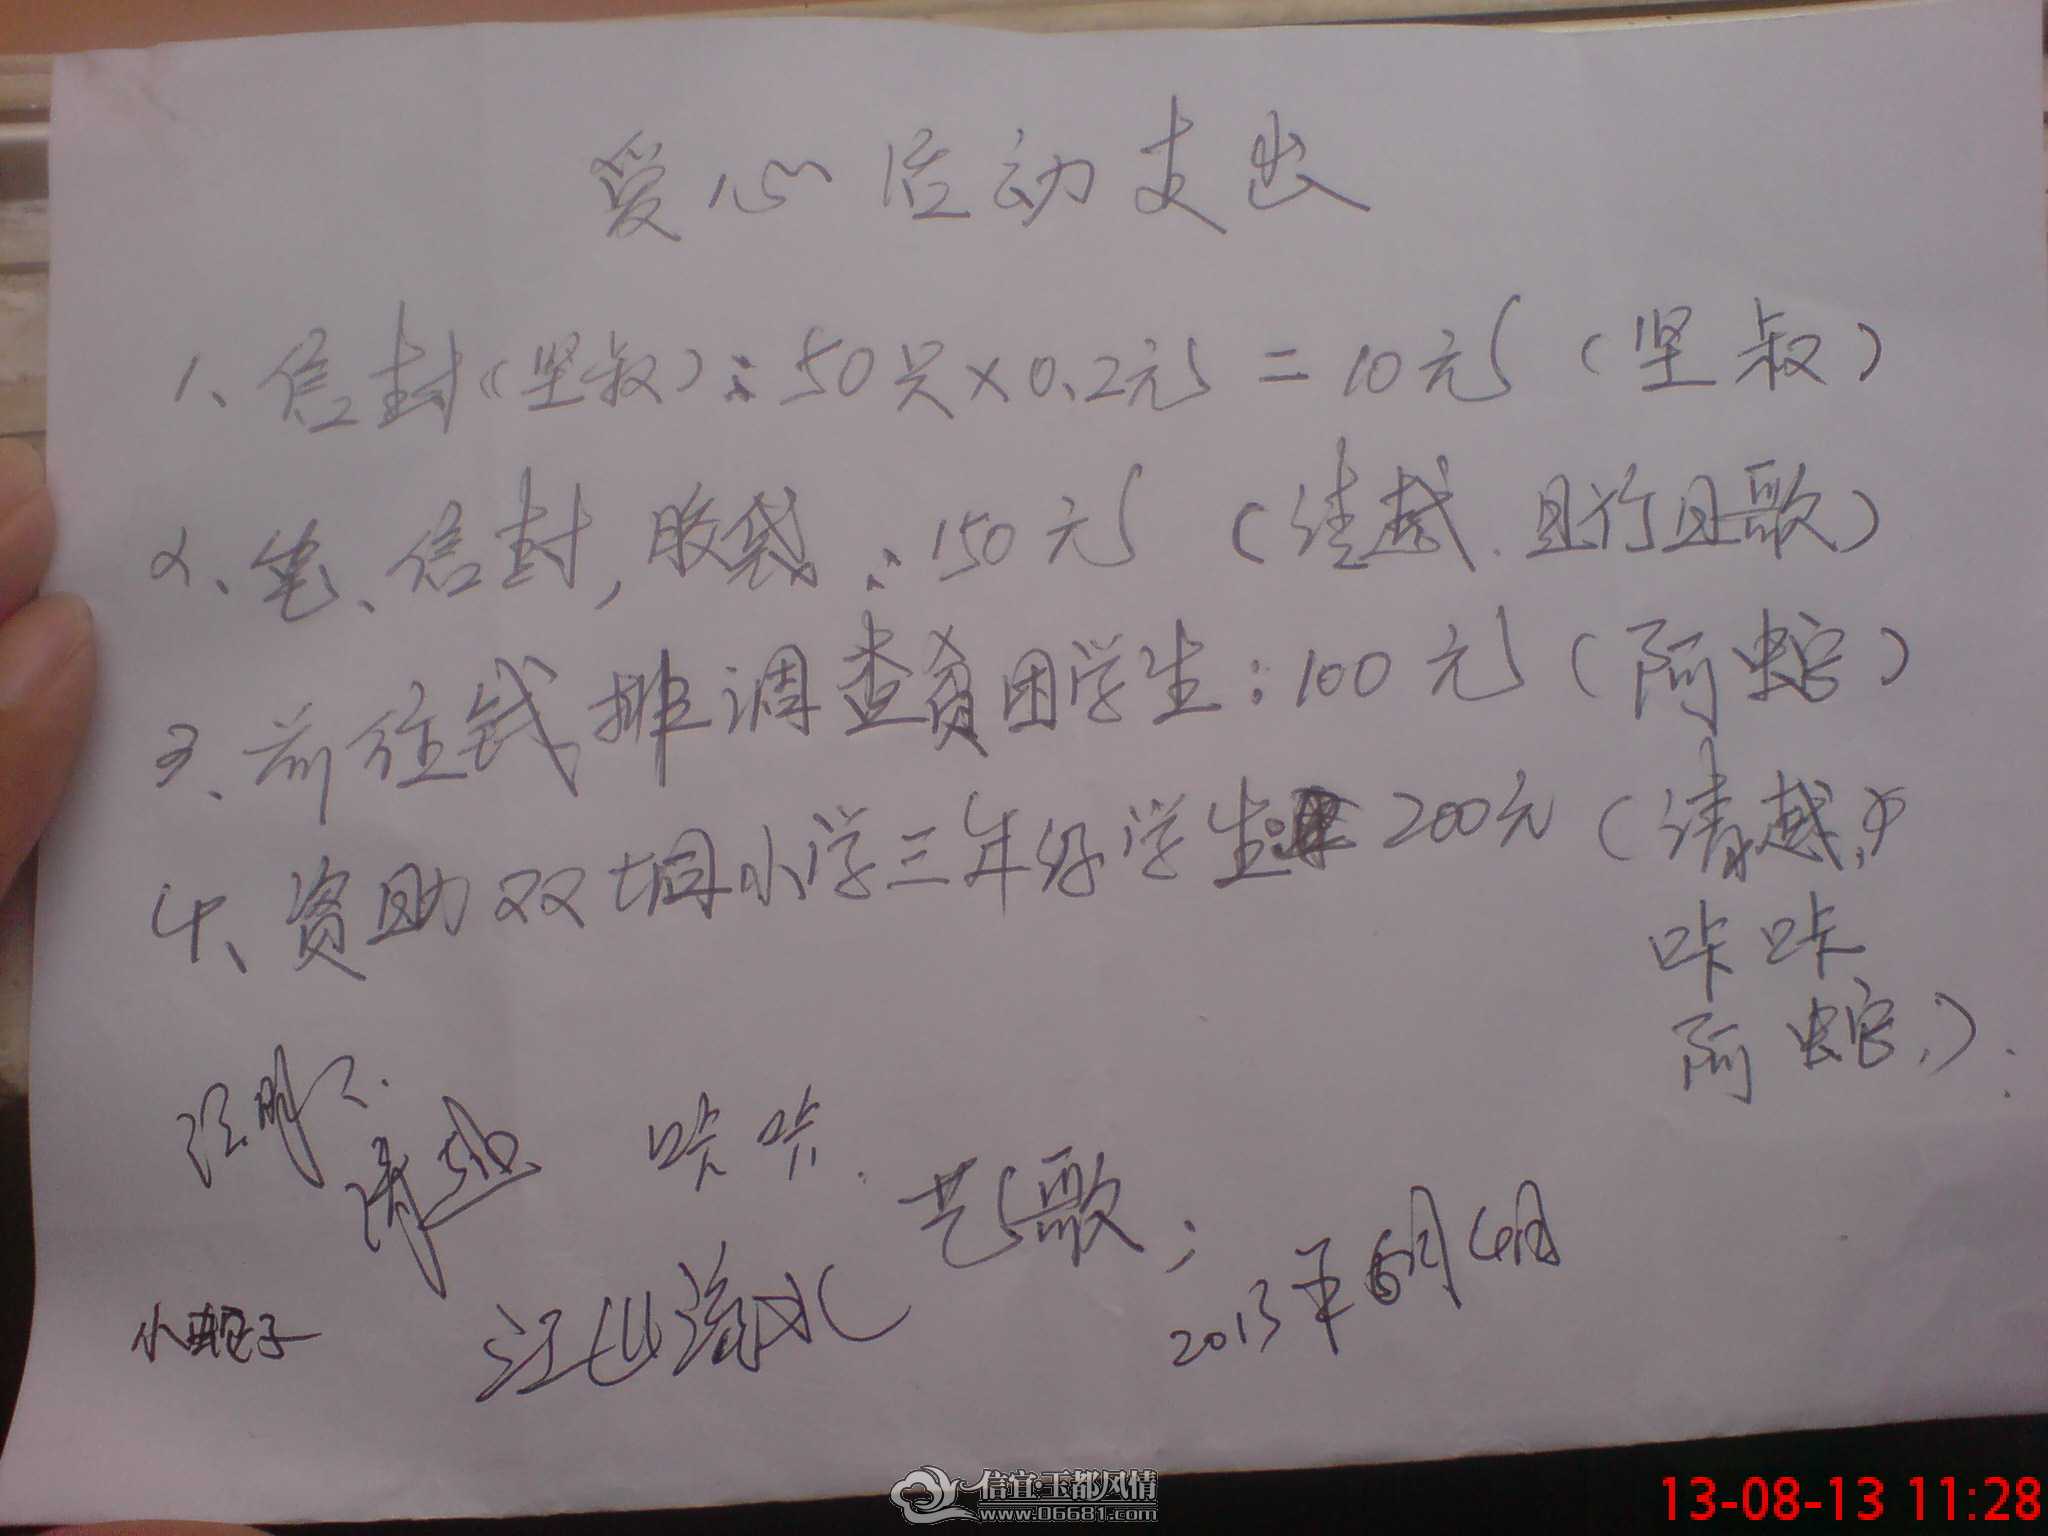 爱心活动支出
1、信封(坚叔):50只×0.2元=10元(坚叔)
2、笔、信封,胶袋:150元(清越、且行且歌)
3、前往钱排调查贫困学生:100元(阿蛇)
4、资助双垌小学三年级学生 200元(清越,
咔咔
阿蛇,).
清越 咔咔.
艺歌;
小蚍子 江山流水 2013年6月4日
信宜·玉都风情
www.06681.com
13-08-13 11:28